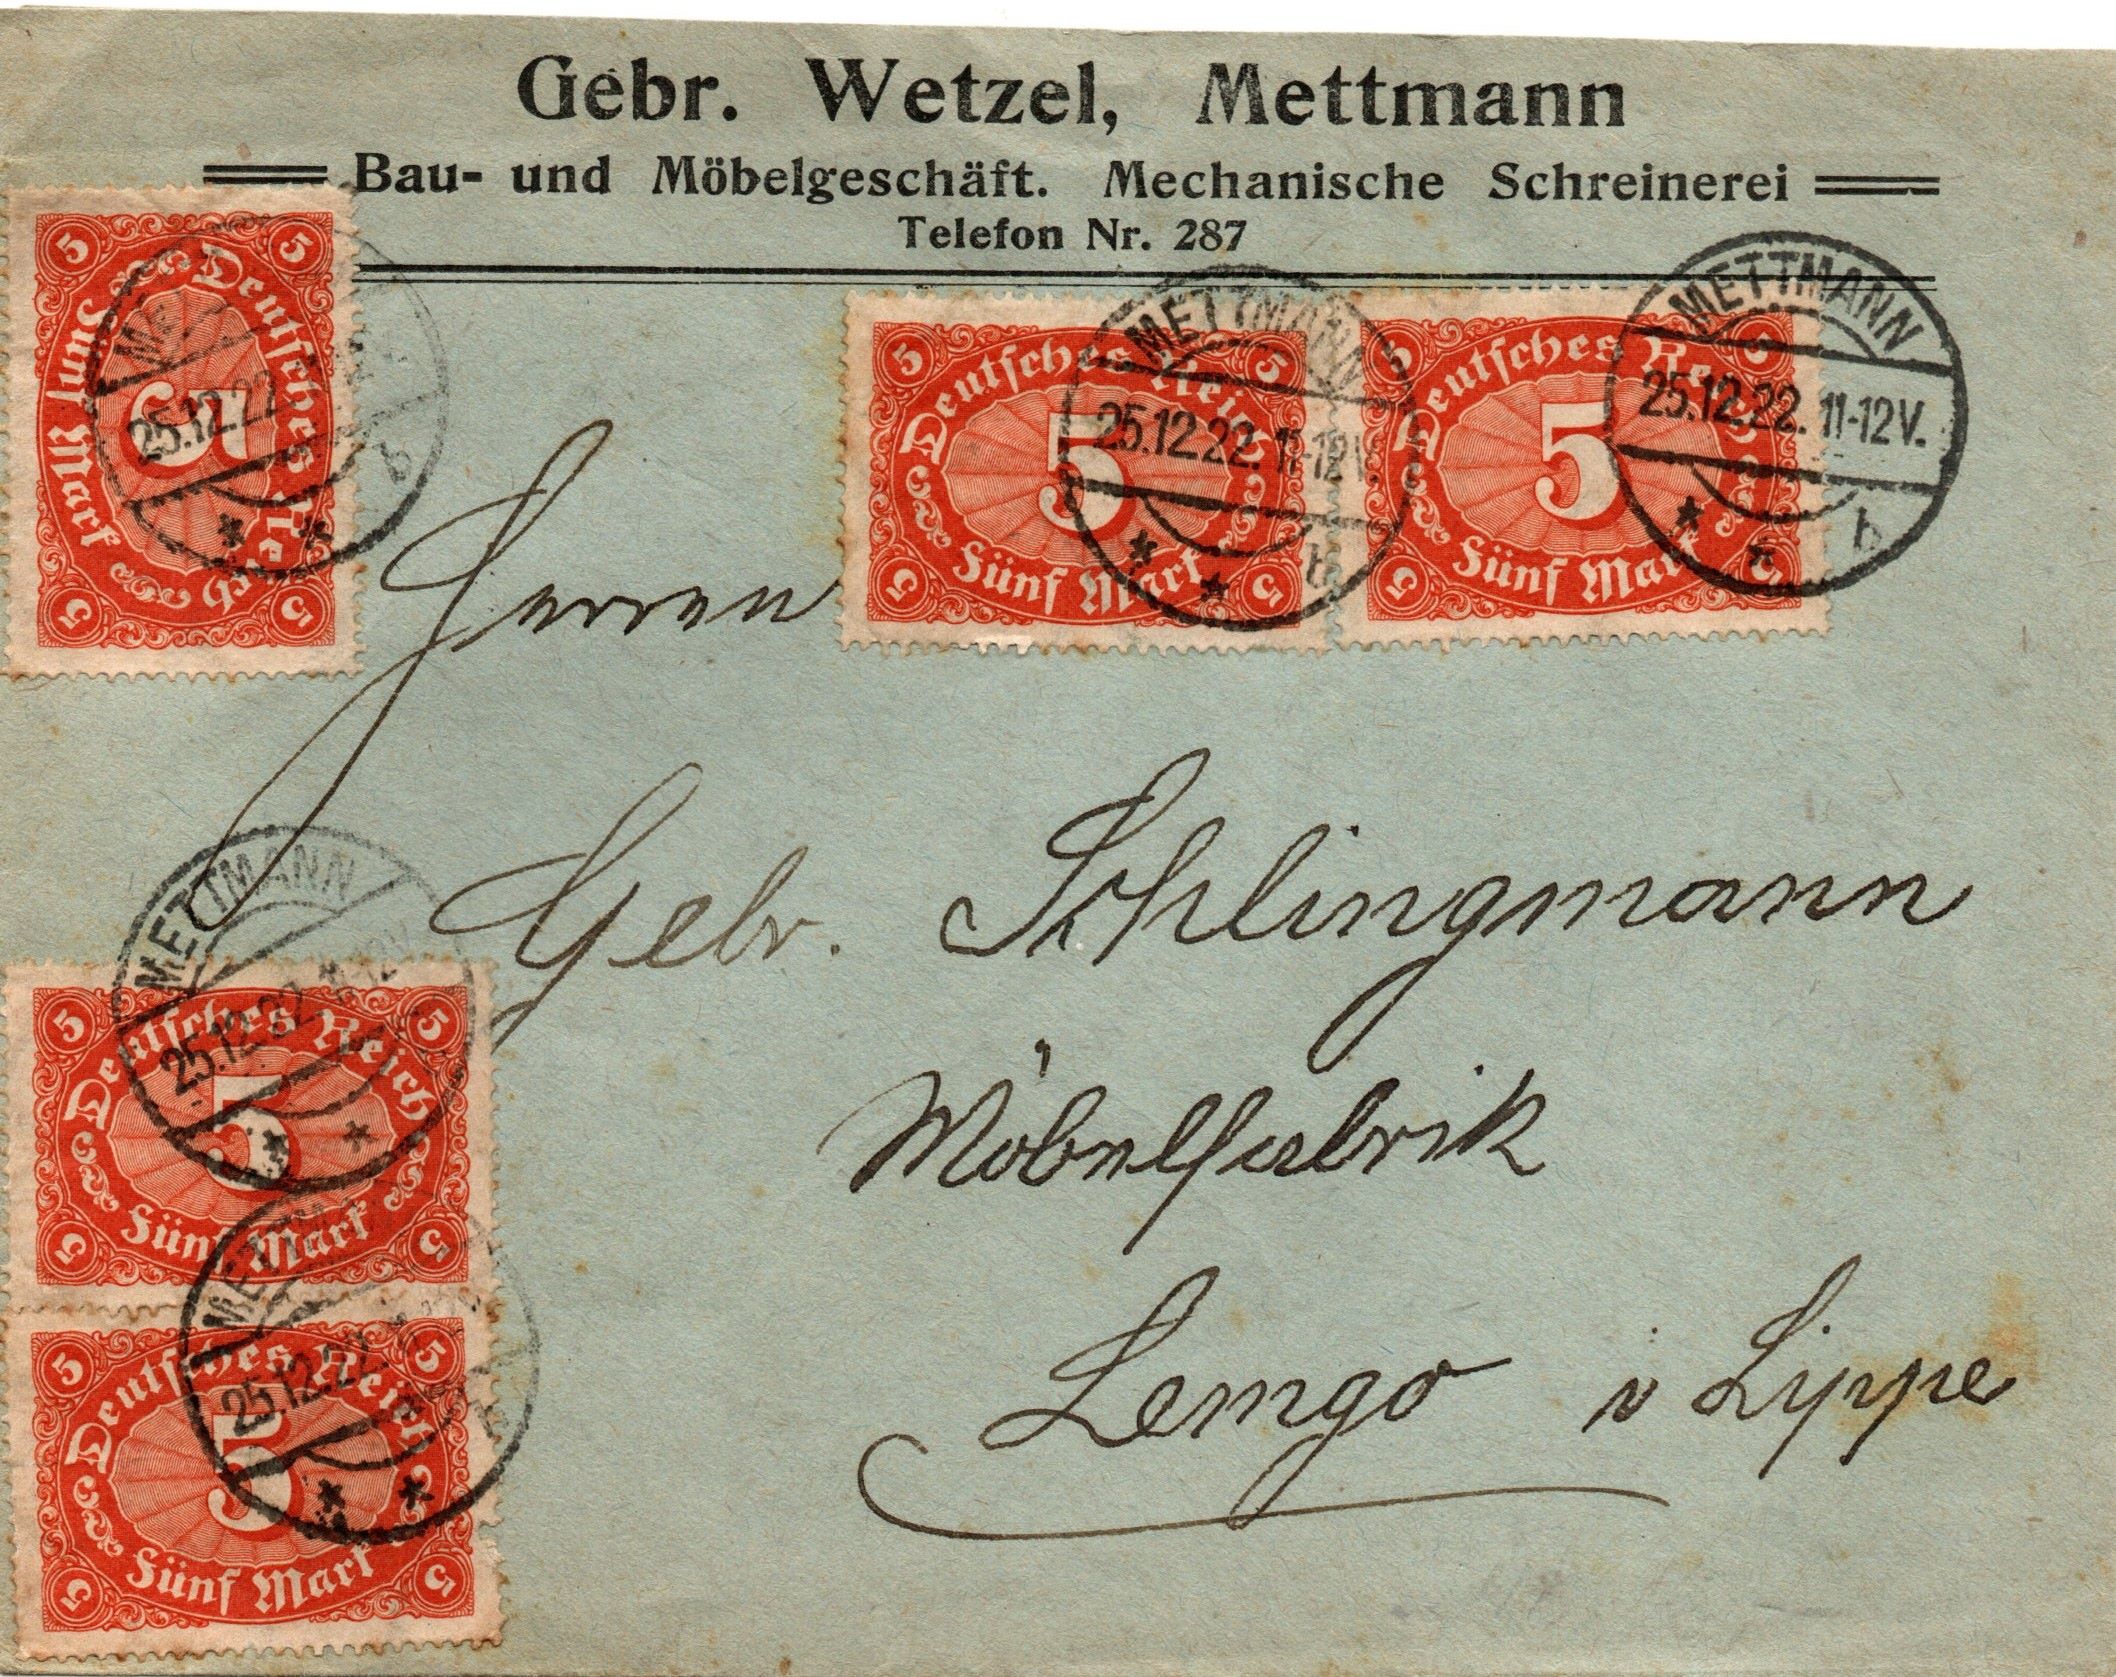 Gebr. Wetzel, Mettmann
Bau- und Möbelgeschäft. Mechanische Schreinerei
Telefon Nr. 287
5 5
Deutsches Reich
5
Fünf Mark
5 5
METTMANN
25.12.22
b
5 5
Deutsches Reich
5
Fünf Mark
5 5
METTMANN
25.12.22. 11-12V.
b
5 5
Deutsches Reich
5
Fünf Mark
5 5
METTMANN
25.12.22. 11-12V.
b
Herren
Gebr. Schlingmann
Möbelfabrik
Lemgo i Lippe
METTMANN
25.12.22 11-12V.
5 5
Deutsches Reich
5
Fünf Mark
5 5
METTMANN
25.12.22
b
5 5
Deutsches Reich
5
Fünf Mark
5 5